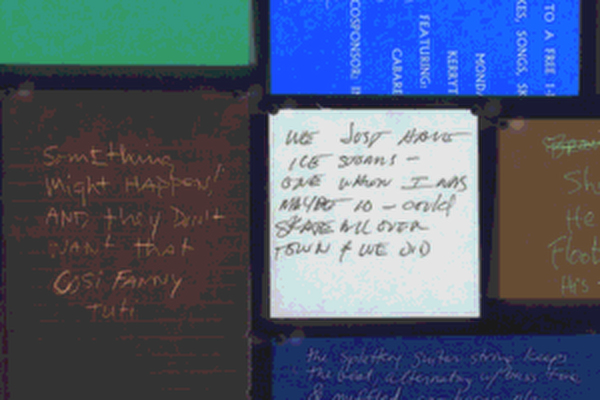 TO A FREE 1-
KES, SONGS, SK
MONDA
KERRYT
FEATURING:
CABARE
COSPONSOR: I
Something
Might HAPPEN!
AND they Don't
WANT that
Cosi FANNY
Tuti
WE JUST HAVE
ICE STORMS –
ONE WHEN I WAS
MAYBE 10 – could
SKATE ALL OVER
TOWN & WE DID
Sh
He
Float
His
the splottery guitar string keeps
the beat, alternating w/ bass tone
& muffled